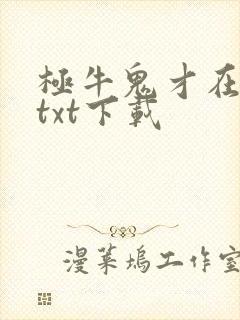 極牛鬼才在
txt下載
漫菜塢工作室